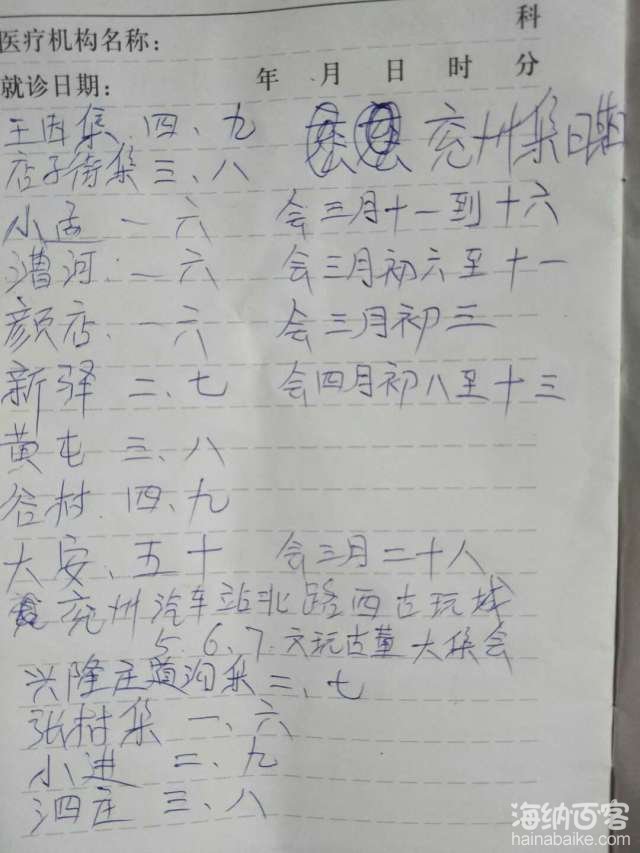 科
医疗机构名称：
就诊日期： 年 月 日 时 分
王因集 四、九 兖州集日期
店子街集 三、八
小孟 一 六 会三月十一到十六
漕河 一 六 会三月初六至十一
颜店 一 六 会三月初三
新驿 二、七 会四月初八至十三
黄屯 三、八
谷村 四、九
大安、五十 会三月二十八
兖州汽车站北路西古玩城
5、6、7、文玩古董大集会
兴隆庄道沟集 二、七
张村集 一、六
小进 二、九
泗庄 三、八
海纳百客
hainabaike.com